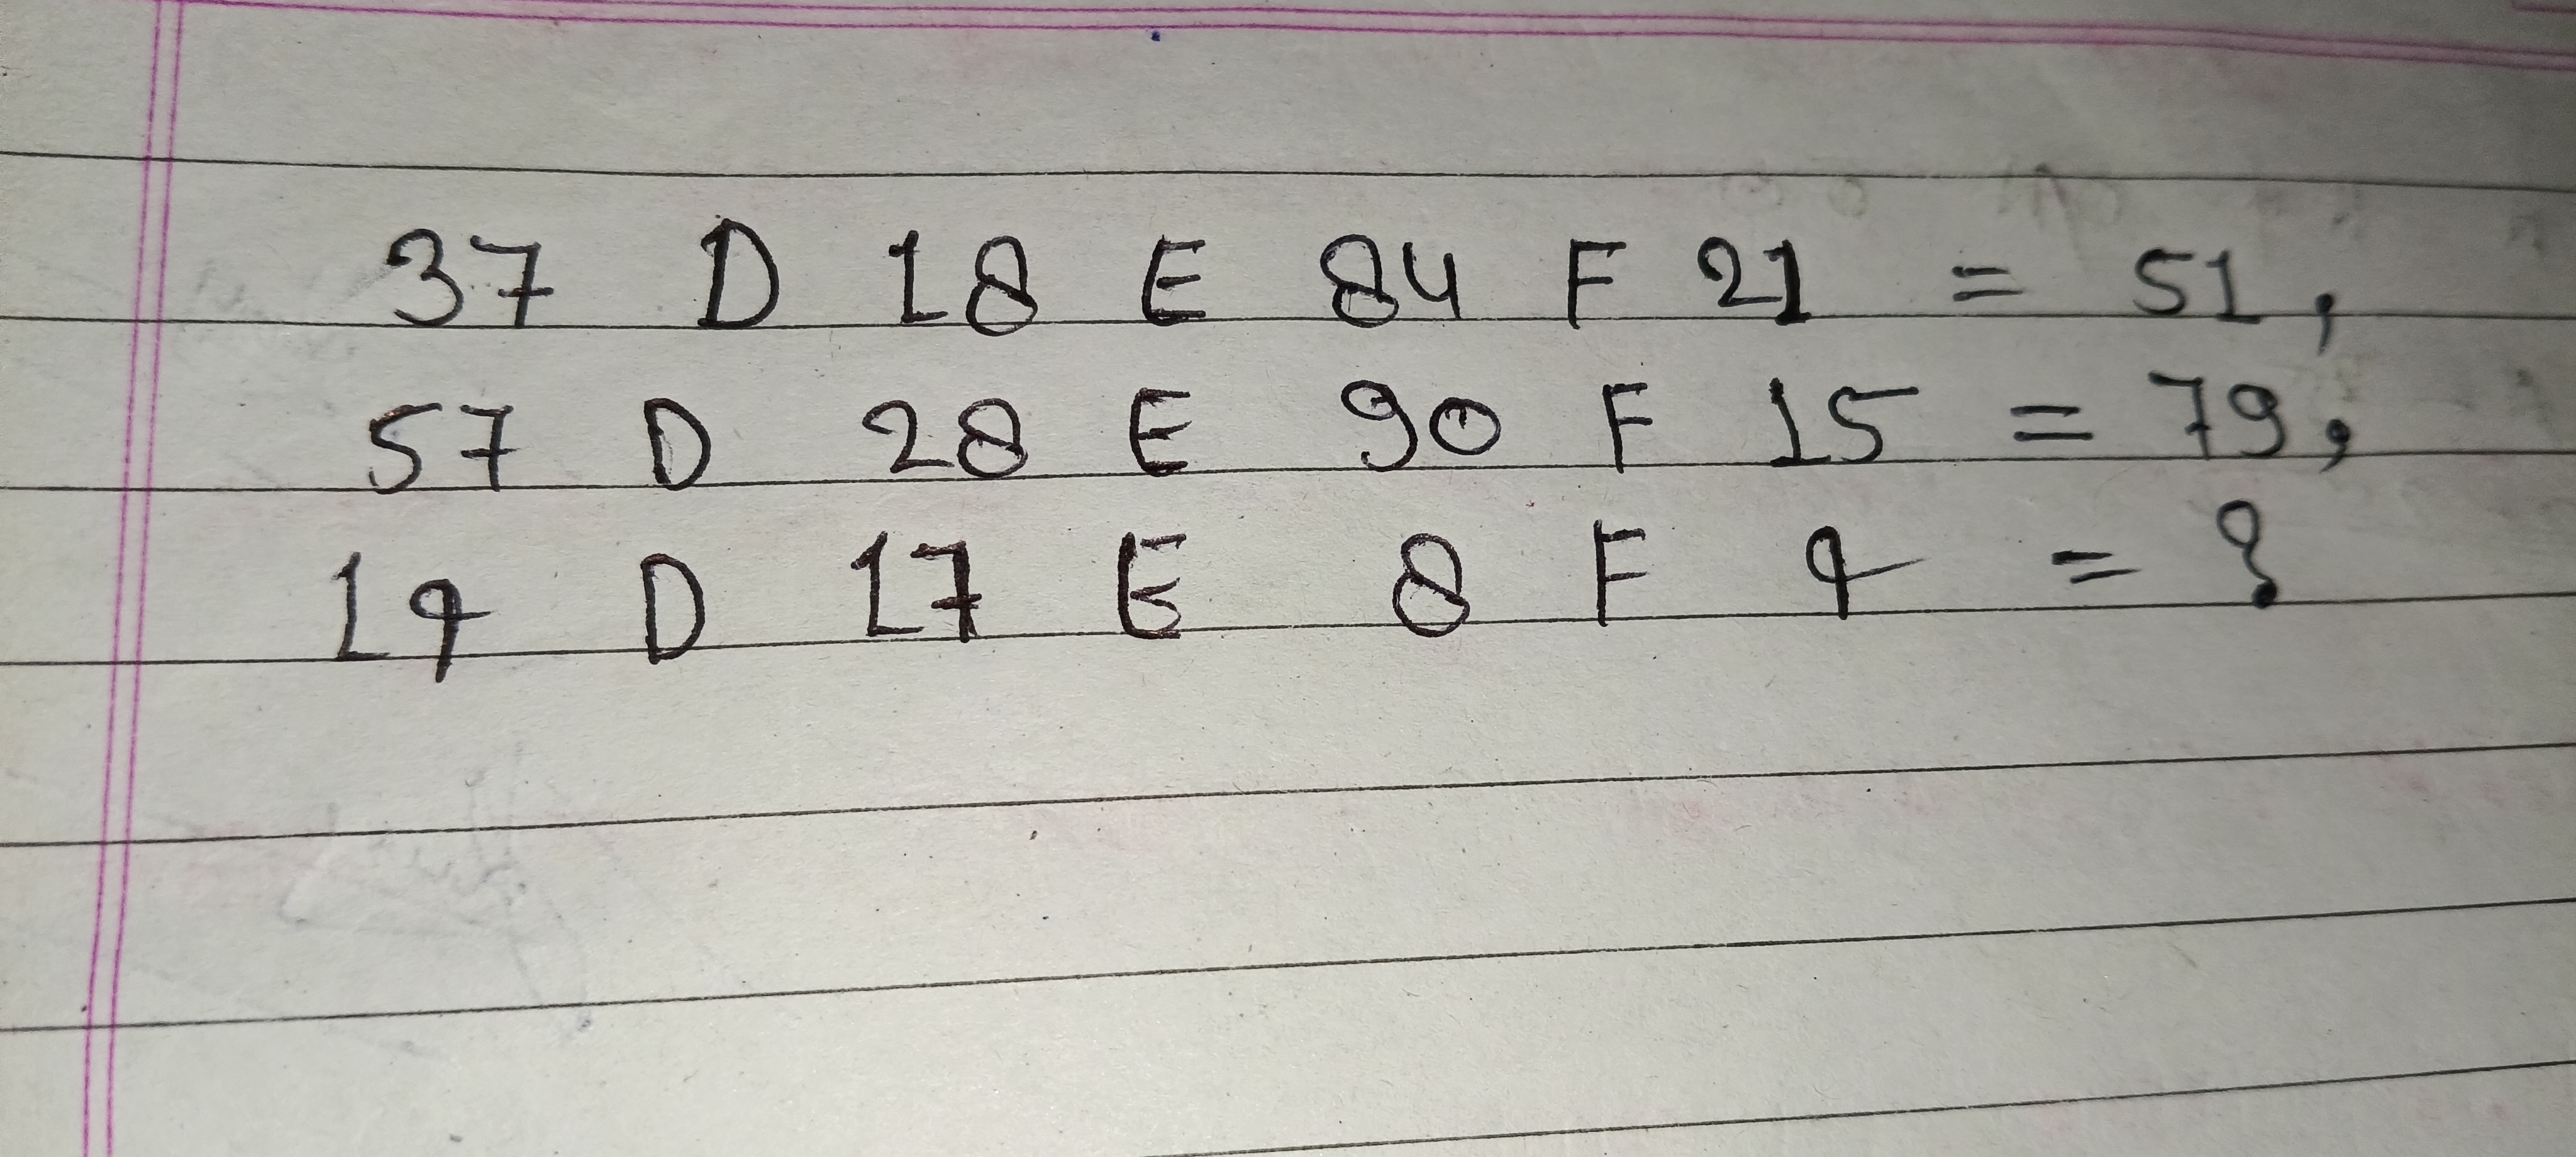 37 D 18 E 84 F 21 = 51,
57 D 28 E 90 F 15 = 79,
14 D 17 E 8 F 4 = ?